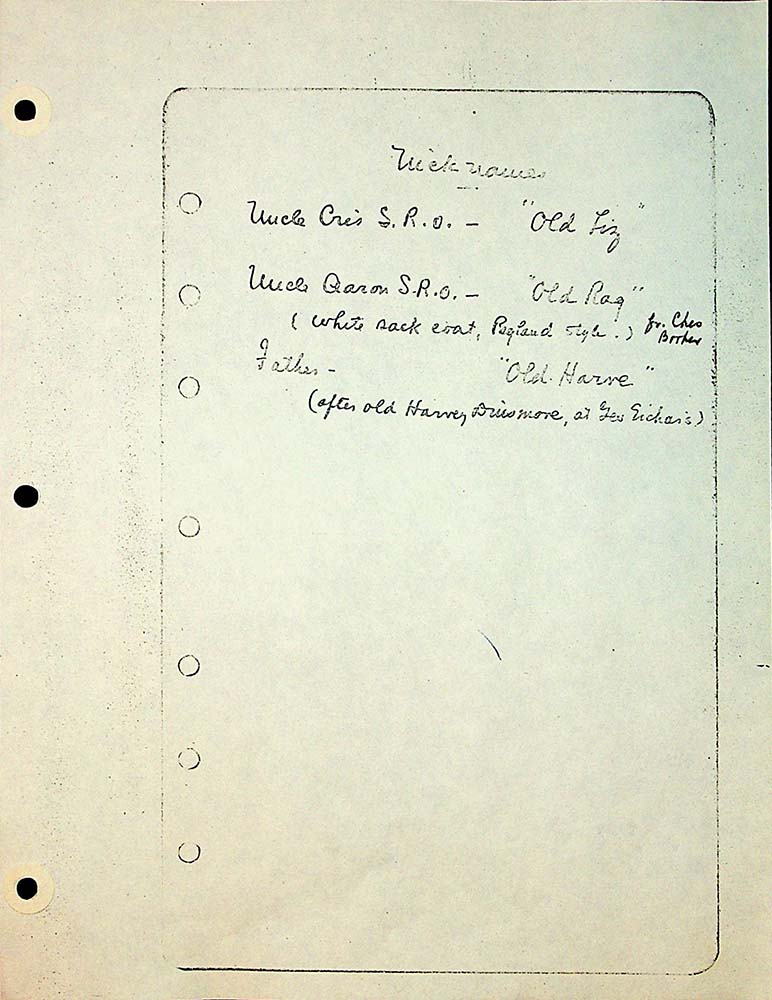 Nicknames
Uncle Cris S.R.O. — "Old Liz"
Uncle Aaron S.R.O. — "Old Rag"
(White sack coat, Ragland style.) fr. Ches
Father — "Old Harve"
(after old Harvey Dinsmore, at Geo